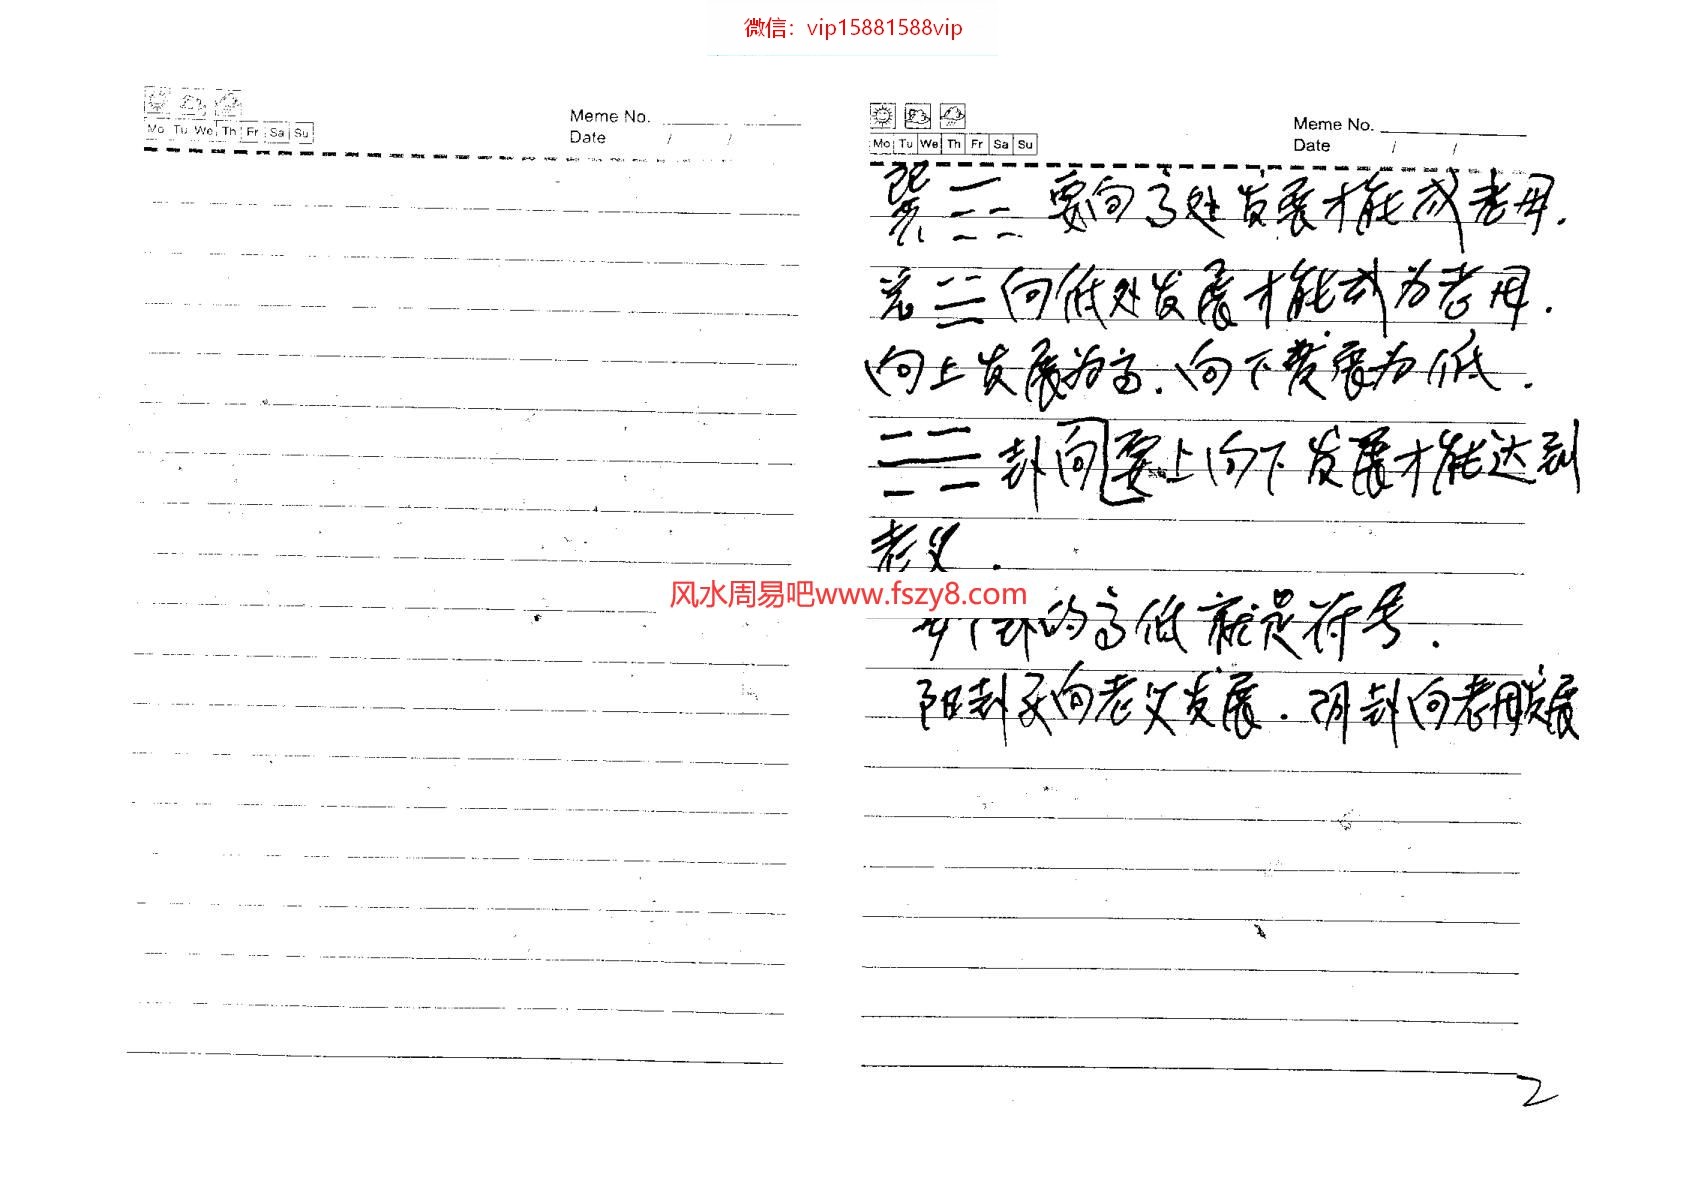 微信：vip15881588vip
Meme No.
Date / /
Mo Tu We Th Fr Sa Su
Meme No.
Date / /
Mo Tu We Th Fr Sa Su
巽 ☴ 要向高处发展才能成老母.
兑 ☱ 向低处发展才能成为老母.
向上发展为高.向下发展为低.
卦向要上向下发展才能达到
老父.
风水周易吧www.fszy8.com
卦的高低就是符号.
阳卦 向老父发展.阴卦向老母发展
2